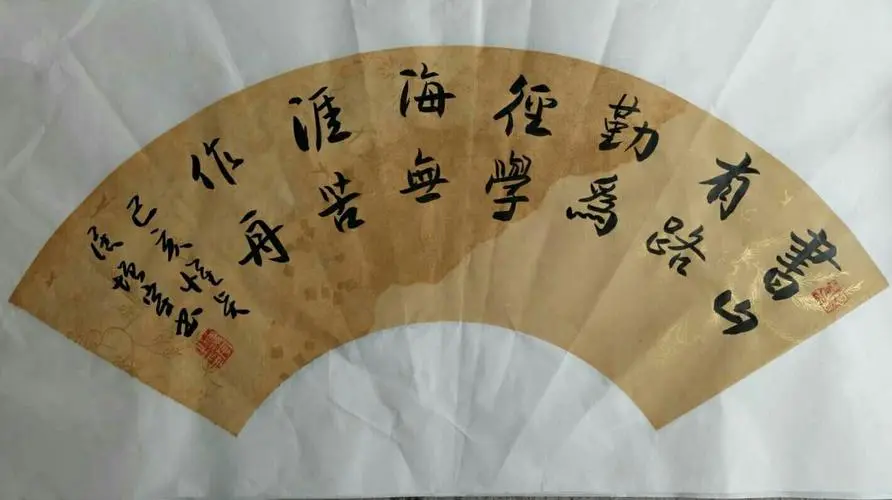 書山
有路
勤為
徑學
海無
涯苦
作舟
己亥
书